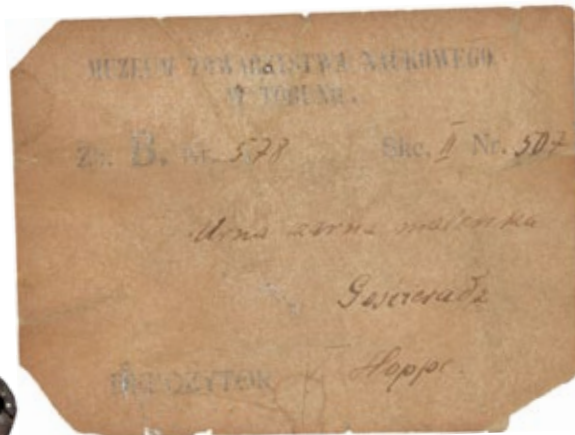 MUZEUM TOWARZYSTWA NAUKOWEGO
W TORUNIU.
Zb. B. Nr. 578 Skc. II Nr. 507
Urna czarna maleńka
Gościeradz
Hoppe.
DEPOZYTOR